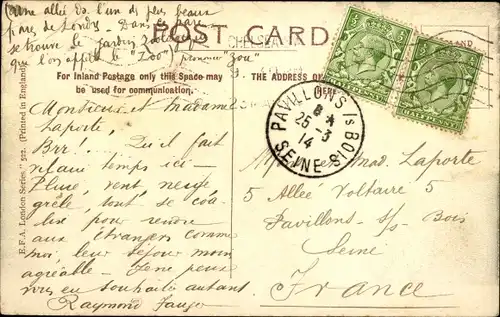 (Une allée de l'un des plus beaux
parcs de Londres - Dans ce parc
se trouve le jardin zoologique
que l'on appelle le "Zoo") prononcer "Zou"
POST CARD
CHELSEA S.W.
For Inland Postage only this Space may
be used for communication.
THE ADDRESS
HERE.
E.F.A. London Series. 522. (Printed in England)
PAVILLONS Is BOIS
8 *
25-3
14
SEINE
Monsieur et Madame
Laporte,
Brr! Qu'il fait
vilain temps ici -
Pluie, vent neige
grêle, tout se coa-
lise pour rendre
aux étrangers comme
moi, leur séjour moins
agréable - Je ne peux
vous en souhaiter autant
Raymond
Mad. Laporte
5 Allée Voltaire 5
Pavillons-s/s-Bois
Seine
France